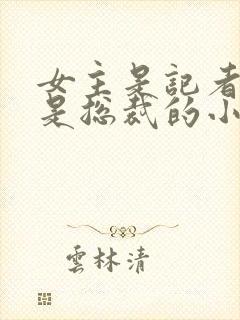 女主是記者
是总裁的小
雲林清